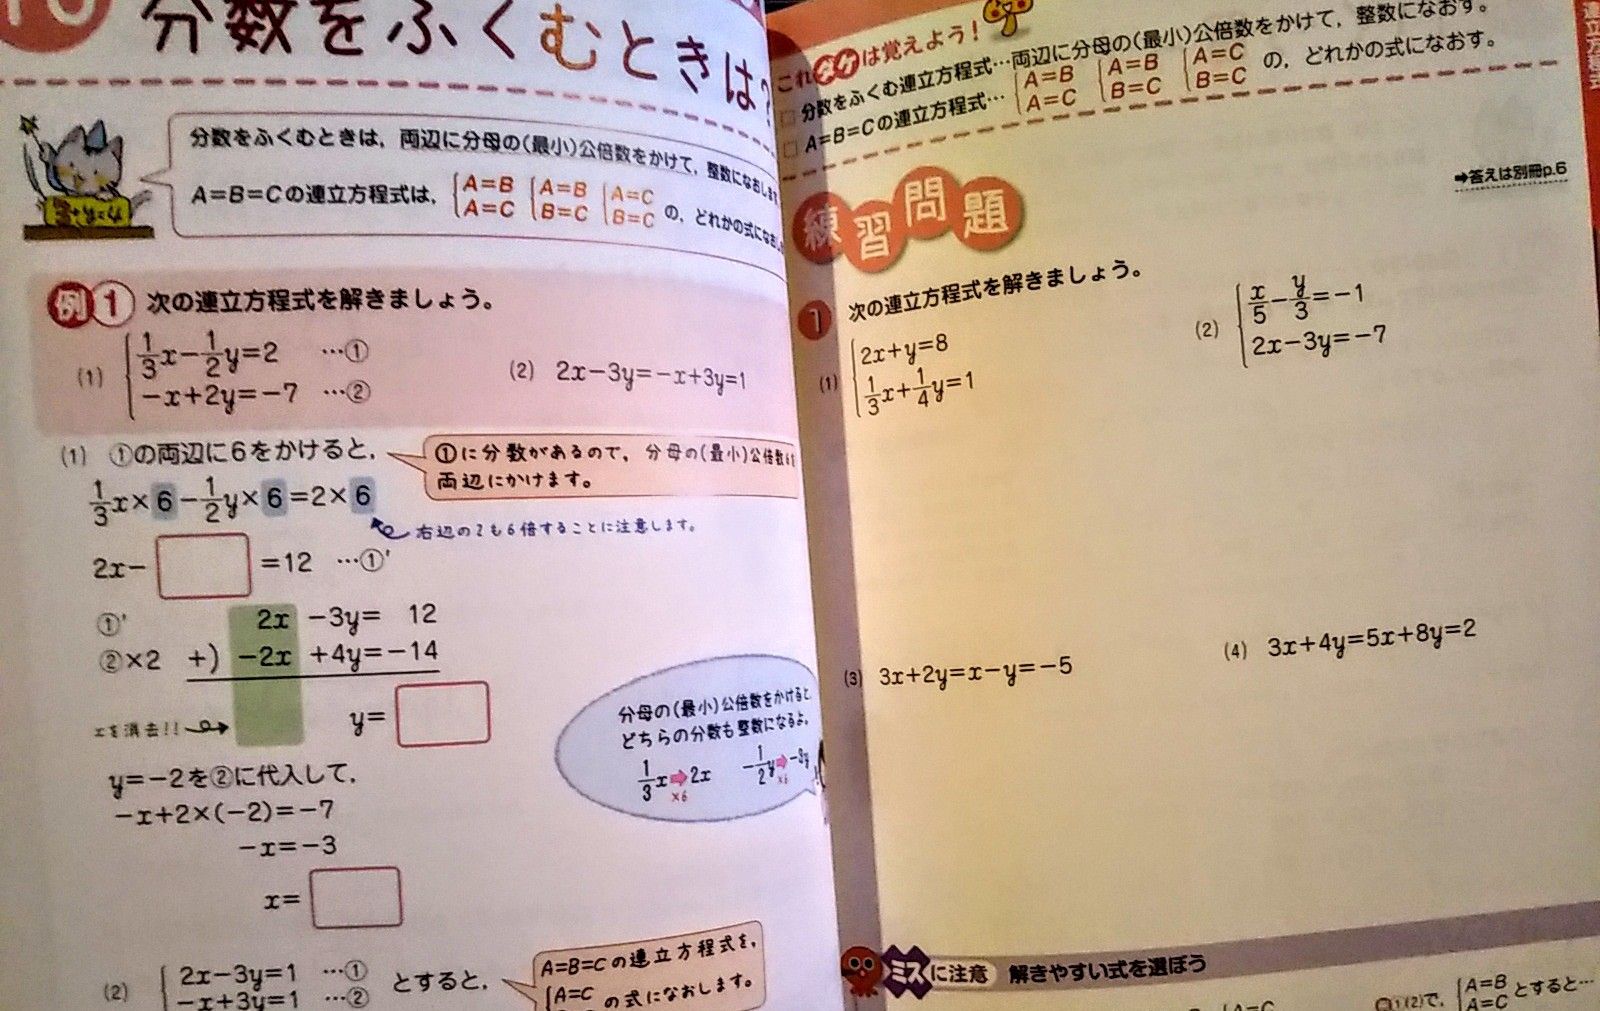 10 分数をふくむときは?
分数をふくむときは，両辺に分母の(最小)公倍数をかけて，整数になおします
A=B=Cの連立方程式は，{A=B A=C {A=B B=C {A=C B=C の，どれかの式になおし
例1 次の連立方程式を解きましょう。
(1) {1/3x−1/2y=2 …①
−x+2y=−7 …②
(2) 2x−3y=−x+3y=1
(1) ①の両辺に6をかけると，
①に分数があるので，分母の(最小)公倍数6を
両辺にかけます。
1/3x×6−1/2y×6=2×6
右辺の2も6倍することに注意します。
2x− =12 …①'
①' 2x −3y= 12
②×2 +) −2x +4y=−14
xを消去!! y=
分母の(最小)公倍数をかけると，
どちらの分数も整数になるよ。
1/3x➡2x −1/2y➡−3y
×6 ×6
y=−2を②に代入して，
−x+2×(−2)=−7
−x=−3
x=
(2) {2x−3y=1 …①
−x+3y=1 …②
とすると，
A=B=Cの連立方程式を，
{A=C の式になおします。
これダケは覚えよう!
□ 分数をふくむ連立方程式…両辺に分母の(最小)公倍数をかけて，整数になおす。
□ A=B=Cの連立方程式…{A=B A=C {A=B B=C {A=C B=C の，どれかの式になおす。
連立方程式
練習問題
➡答えは別冊p.6
1 次の連立方程式を解きましょう。
(1) {2x+y=8
1/3x+1/4y=1
(2) {x/5−y/3=−1
2x−3y=−7
(3) 3x+2y=x−y=−5
(4) 3x+4y=5x+8y=2
ミスに注意 解きやすい式を選ぼう
{A=C
1(2)で，{A=B A=C とすると…